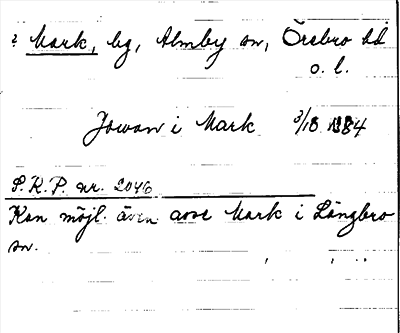 ? Mark, by, Almby sn, Örebro hd
o. l.
Jowan i Mark 3/18 1384
S.R.P. nr. 2046
Kan möjl. även avse Mark i Längbro
sn.